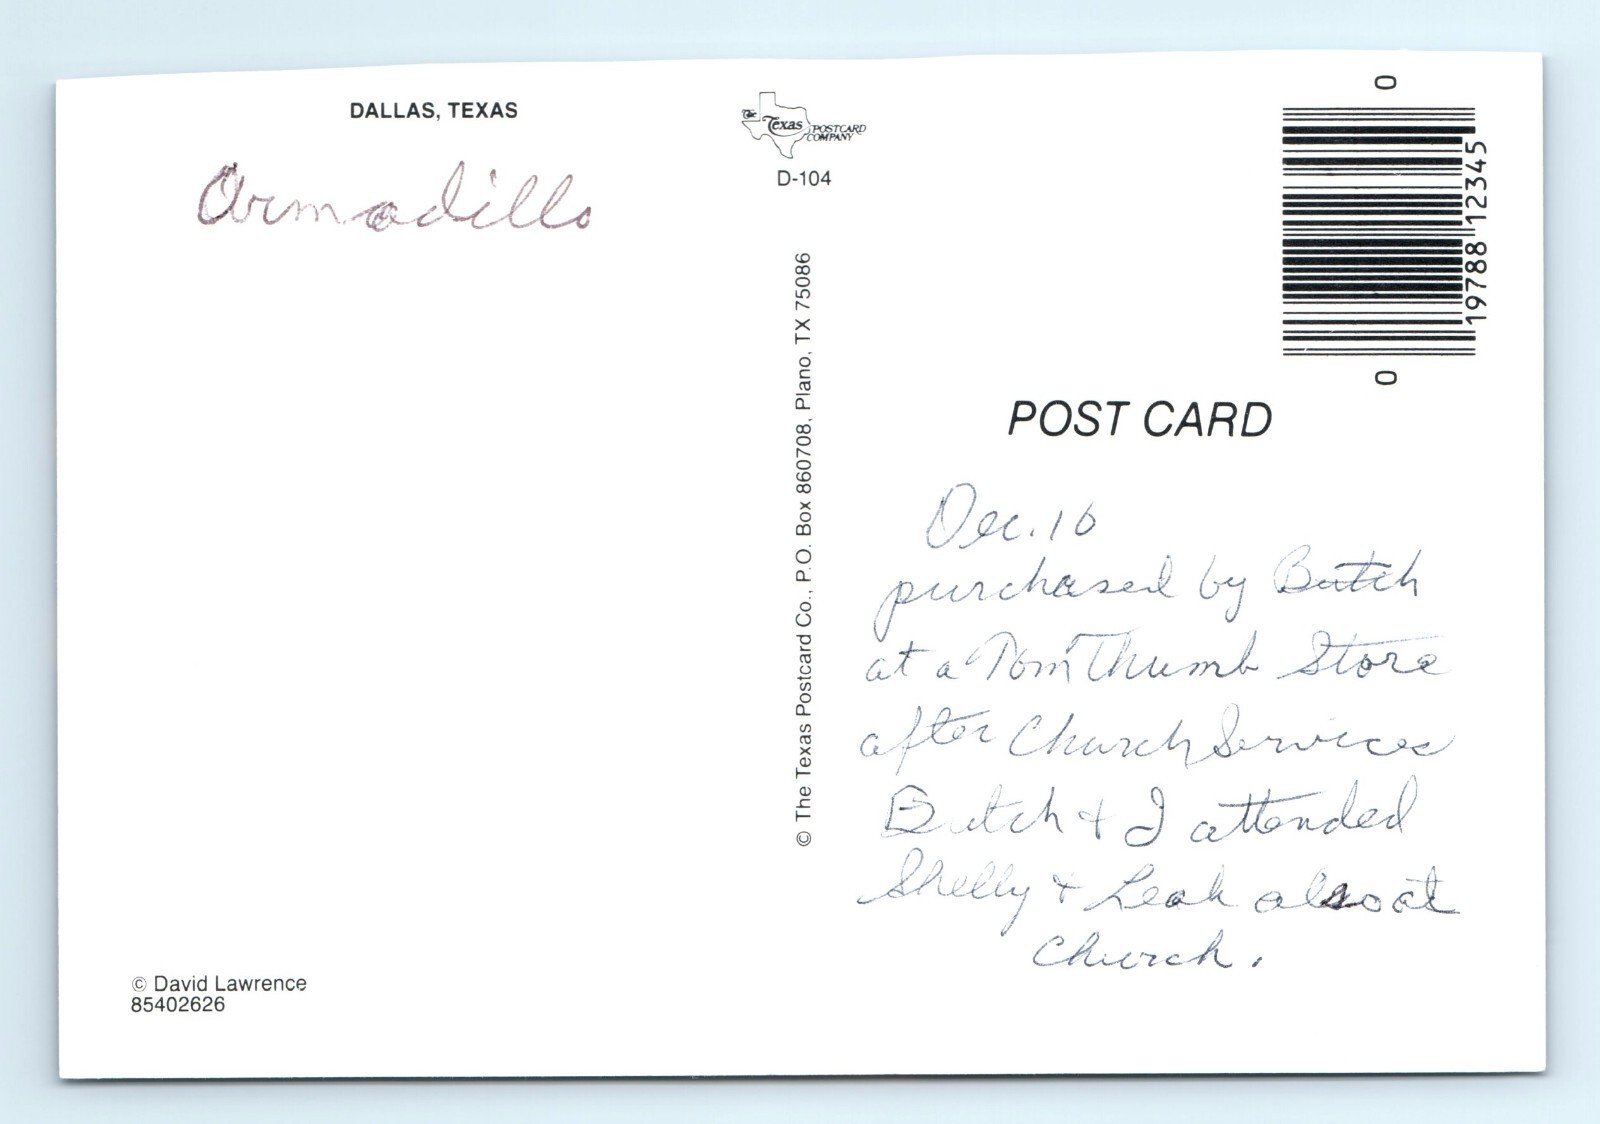 DALLAS, TEXAS
Armadillo
The Texas POSTCARD COMPANY
D-104
© The Texas Postcard Co., P.O. Box 860708, Plano, TX 75086
0
19788 12345
0
POST CARD
Dec. 16
purchased by Butch
at a Tom Thumb Store
after Church Services
Butch & I attended
Shelly & Leah also at
Church.
© David Lawrence
85402626